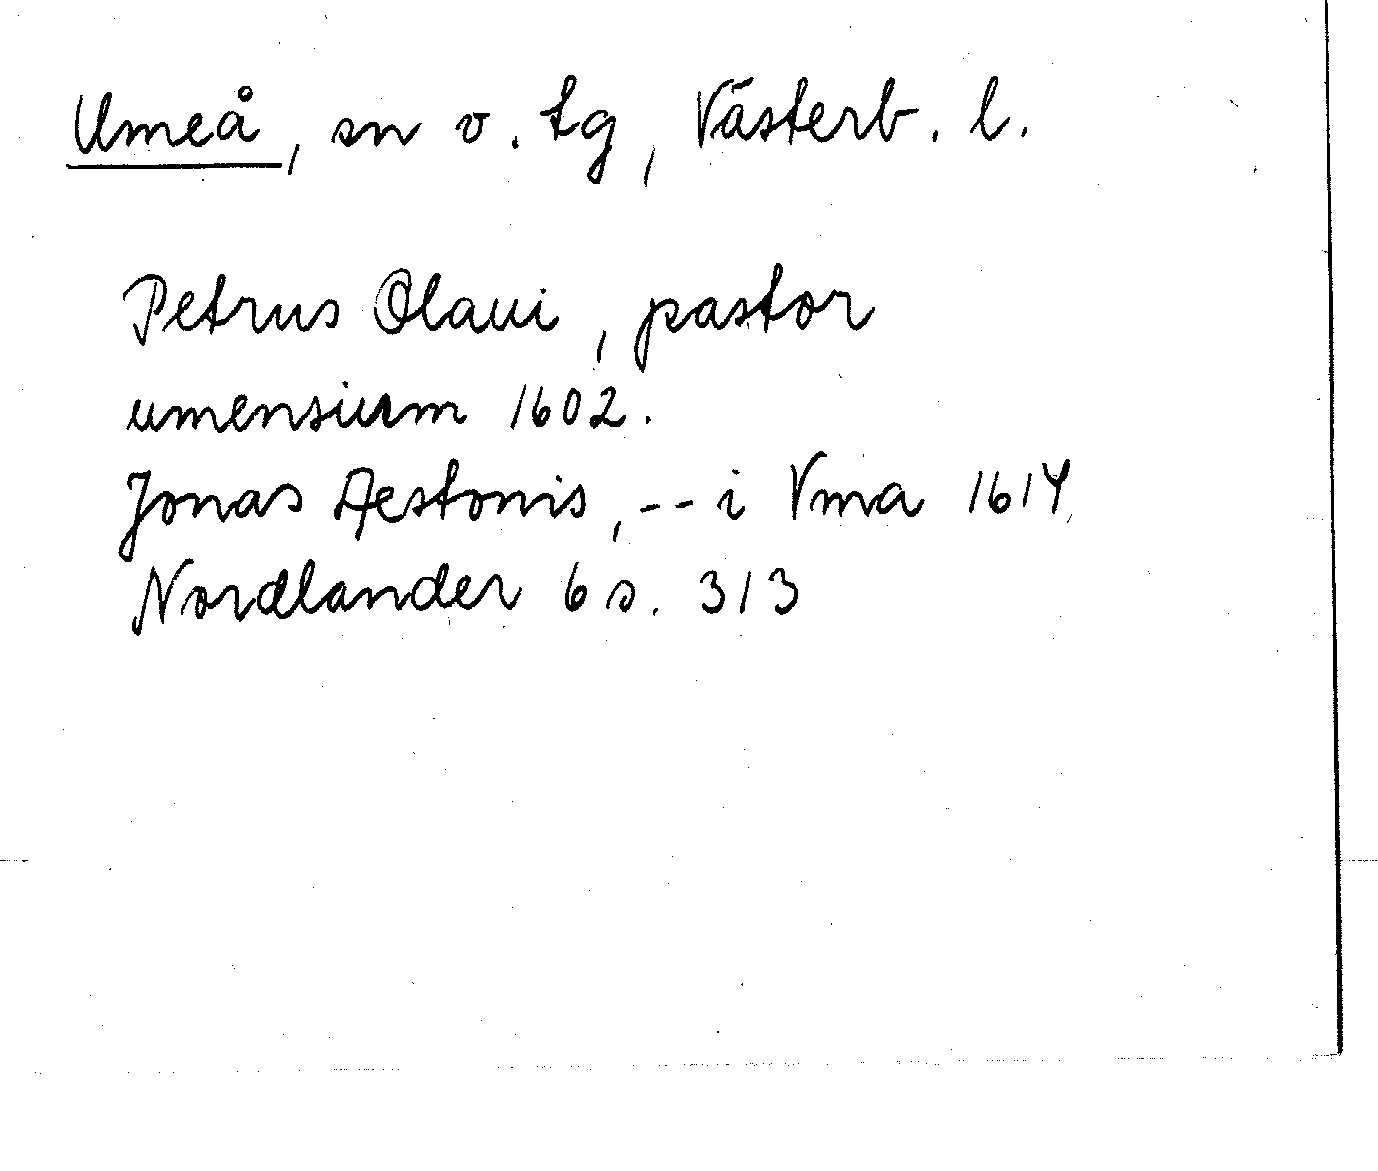 Umeå, sn o. tg, Västerb. l.
Petrus Olaui, pastor
umensium 1602.
Jonas Aestonis, -- i Vma 1614
Nordlander 6 s. 313